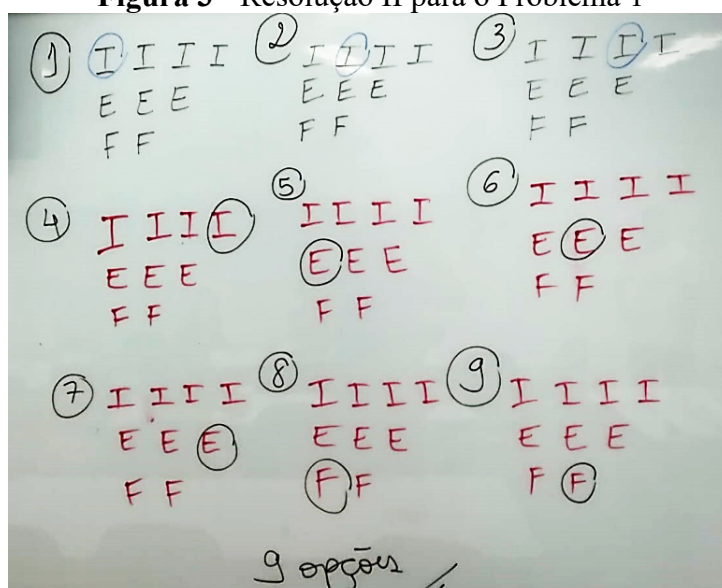 Figura 3 - Resolução II para o Problema 1
1 I I I I
E E E
F F
2 I I I I
E E E
F F
3 I I I I
E E E
F F
4 I I I I
E E E
F F
5 I I I I
E E E
F F
6 I I I I
E E E
F F
7 I I I I
E E E
F F
8 I I I I
E E E
F F
9 I I I I
E E E
F F
9 opções